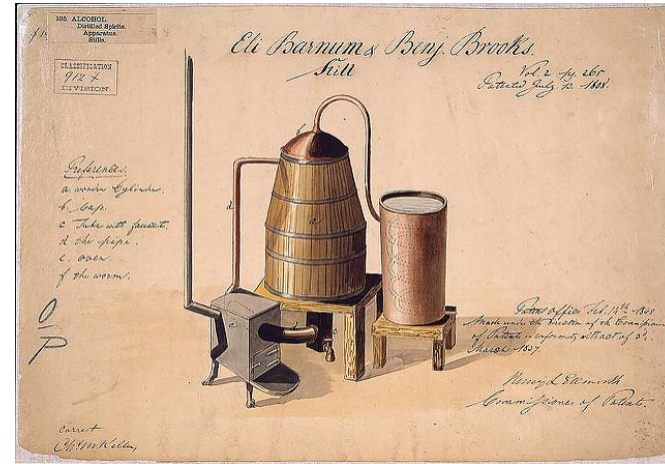 195. ALCOHOL.
Distilled Spirits.
Apparatus.
Stills.
CLASSIFICATION
912 +
DIVISION
Eli Barnum & Benj. Brooks.
Still
Vol. 2 pg. 265
Patented July 13. 1808.
References.
a. wooden Cylinder.
b. Cap.
c Tube with faucet.
d the pipe.
e. oven.
f the worm.
d
a
e
Patent office Feb. 14th 1845
Made under the direction of the Commissioner
of Patents in conformity with act of 3d
March 1837.
Henry L Ellsworth
Commissioner of Patents.
Correct